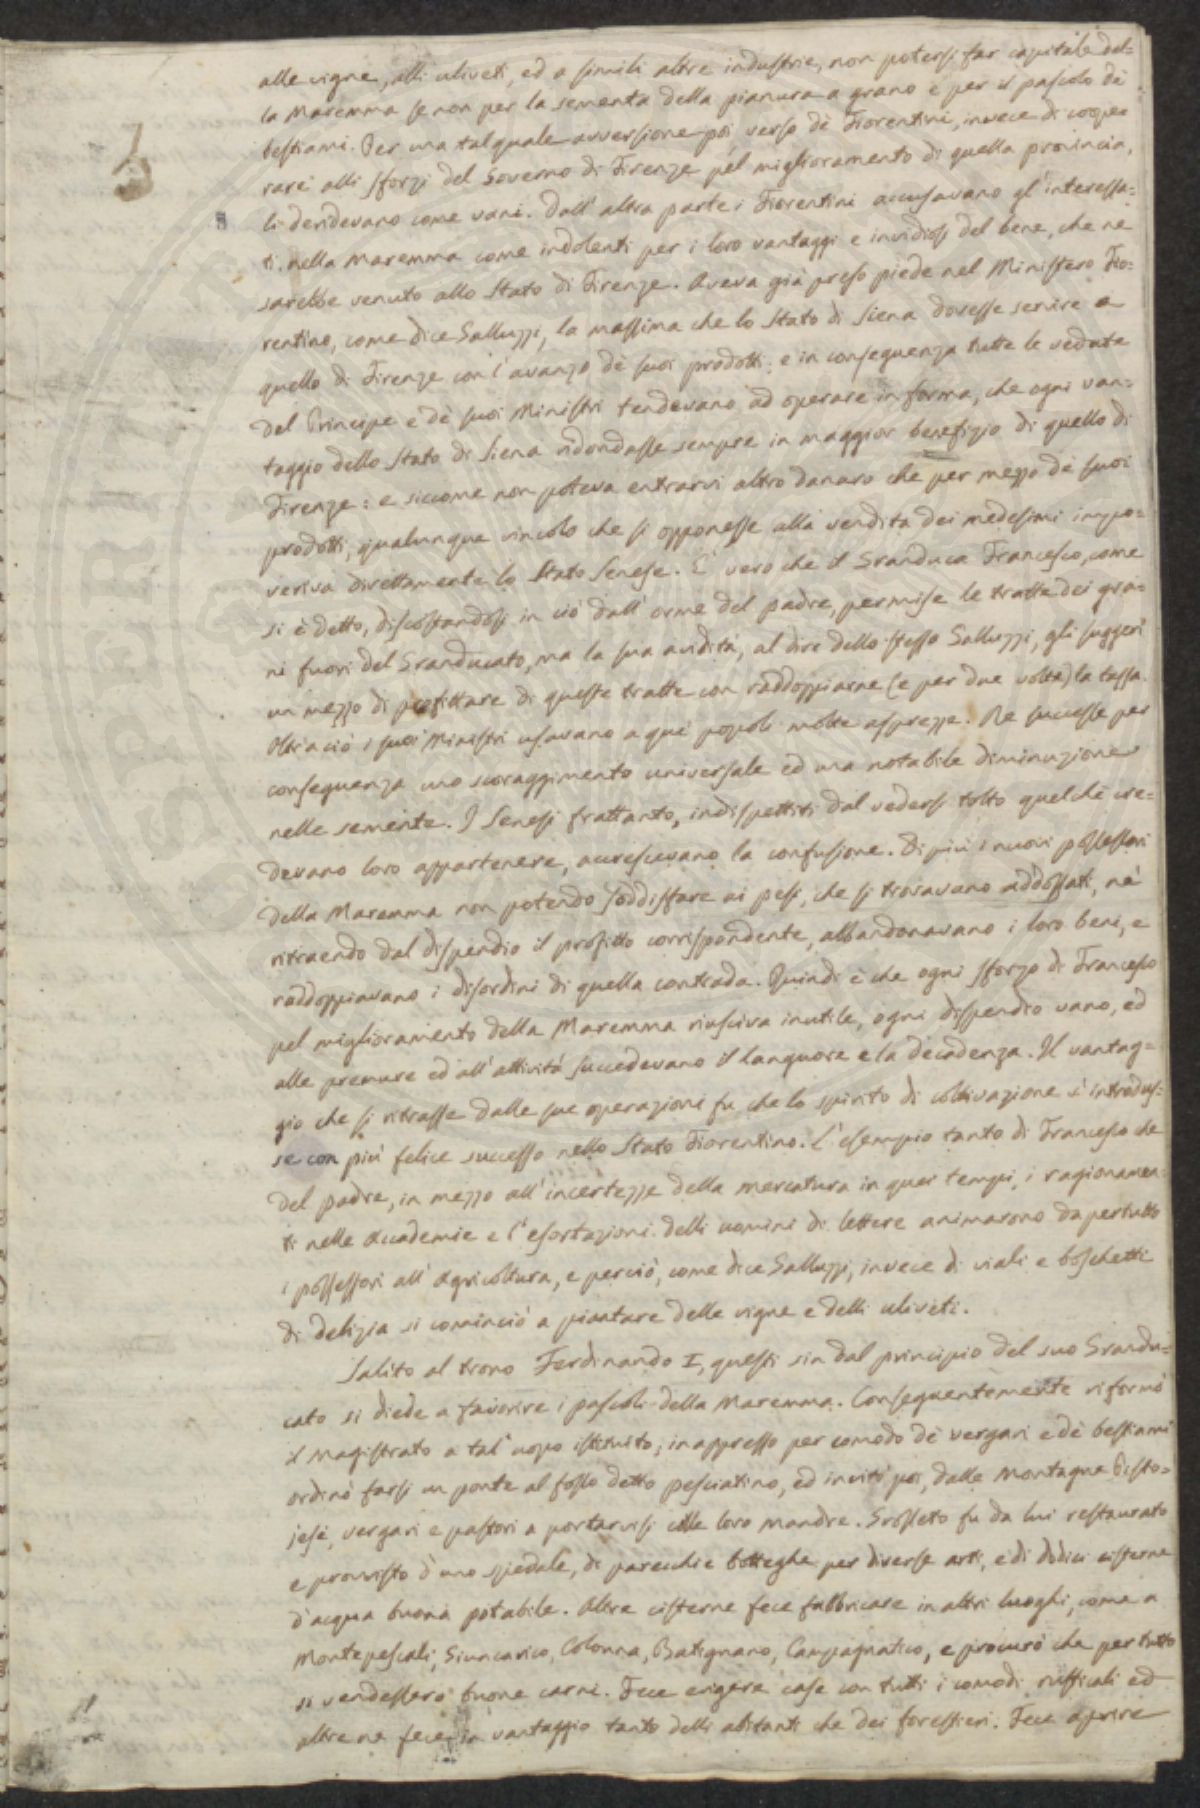 alle vigne, alli uliveti, ed a simili altre industrie, non potersi far capitale del=
la Maremma se non per la sementa della pianura a grano e per il pascolo de'
bestiami. Per una tal quale avversione poi verso de' Fiorentini, invece di coope
rare alli sforzi del Governo di Firenze pel miglioramento di quella provincia,
li deridevano come vani. Dall' altra parte i Fiorentini accusavano gl' interessa=
ti nella Maremma come indolenti per i loro vantaggi e invidiosi del bene, che ne
sarebbe venuto allo Stato di Firenze. Aveva già preso piede nel Ministero Fio=
rentino, come dice Galluzzi, la massima che lo Stato di Siena dovesse servire a
quello di Firenze con l' avanzo de' suoi prodotti; e in conseguenza tutte le vedute
del Principe e de' suoi Ministri tendevano ad operare in forma, che ogni van=
taggio dello Stato di Siena ridondasse sempre in maggior benefizio di quello di
Firenze: e siccome non poteva entrarvi altro danaro che per mezzo de' suoi
prodotti, qualunque vincolo che si opponesse alla vendita dei medesimi impo=
veriva direttamente lo Stato Senese. E' vero che il Granduca Francesco, come
si è detto, discostandosi in ciò dall' orme del padre, permise le tratte dei gra=
ni fuori del Granducato, ma la sua avidità, al dire dello stesso Galluzzi, gli suggerì
un mezzo di profittare di queste tratte con raddoppiarne (e per due volte) la tassa.
Oltracciò i suoi Ministri usavano a que' popoli molte asprezze. Ne successe per
conseguenza uno scoraggimento universale ed una notabile diminuzione
nelle semente. I Senesi frattanto, indispettiti dal vedersi tolto quel chè cre=
devano loro appartenere, accrescevano la confusione. Di più i nuovi possessori
della Maremma non potendo soddisfare ai pesi, che si trovavano addossati, nè
ritraendo dal dispendio il profitto corrispondente, abbandonavano i loro beni, e
raddoppiavano i disordini di quella contrada. Quindi è che ogni sforzo di Francesco
pel miglioramento della Maremma riusciva inutile, ogni dispendio vano, ed
alle premure ed all' attività succedevano il languore e la decadenza. Il vantag=
gio che si ritrasse dalle sue operazioni fu che lo spirito di coltivazione s' introdus=
se con più felice successo nello Stato Fiorentino. L' esempio tanto di Francesco che
del padre, in mezzo all' incertezze della mercatura in quei tempi, i ragionamen=
ti nelle Accademie e l' esortazioni delli uomini di lettere animarono da pertutto
i possessori all' Agricoltura, e perciò, come dice Galluzzi, invece di viali e boschetti
di delizia si cominciò a piantare delle vigne e delli uliveti.
Salito al trono Ferdinando I, questi sin dal principio del suo Grandu=
cato si diede a favorire i pascoli della Maremma. Conseguentemente riformò
il Magistrato a tal' uopo istituito; in appresso per comodo de' vergari e de' bestiami
ordinò farsi un ponte al fosso detto pesciatino, ed invitò poi, dalle Montagne Pisto=
jesi, vergari e pastori a portarvisi colle loro mandre. Grosseto fu da lui restaurato
e provvisto d' uno spedale, di parecchie botteghe per diverse arti, e di dodici cisterne
d' acqua buona potabile. Altre cisterne fece fabbricare in altri luoghi, come a
Montepescali, Giuncarico, Colonna, Batignano, Campagnatico, e procurò che per tutto
si vendessero buone carni. Fece erigere case con tutti i comodi rusticali ed
altre ne fece in vantaggio tanto delli abitanti che dei forestieri. Fece aprire